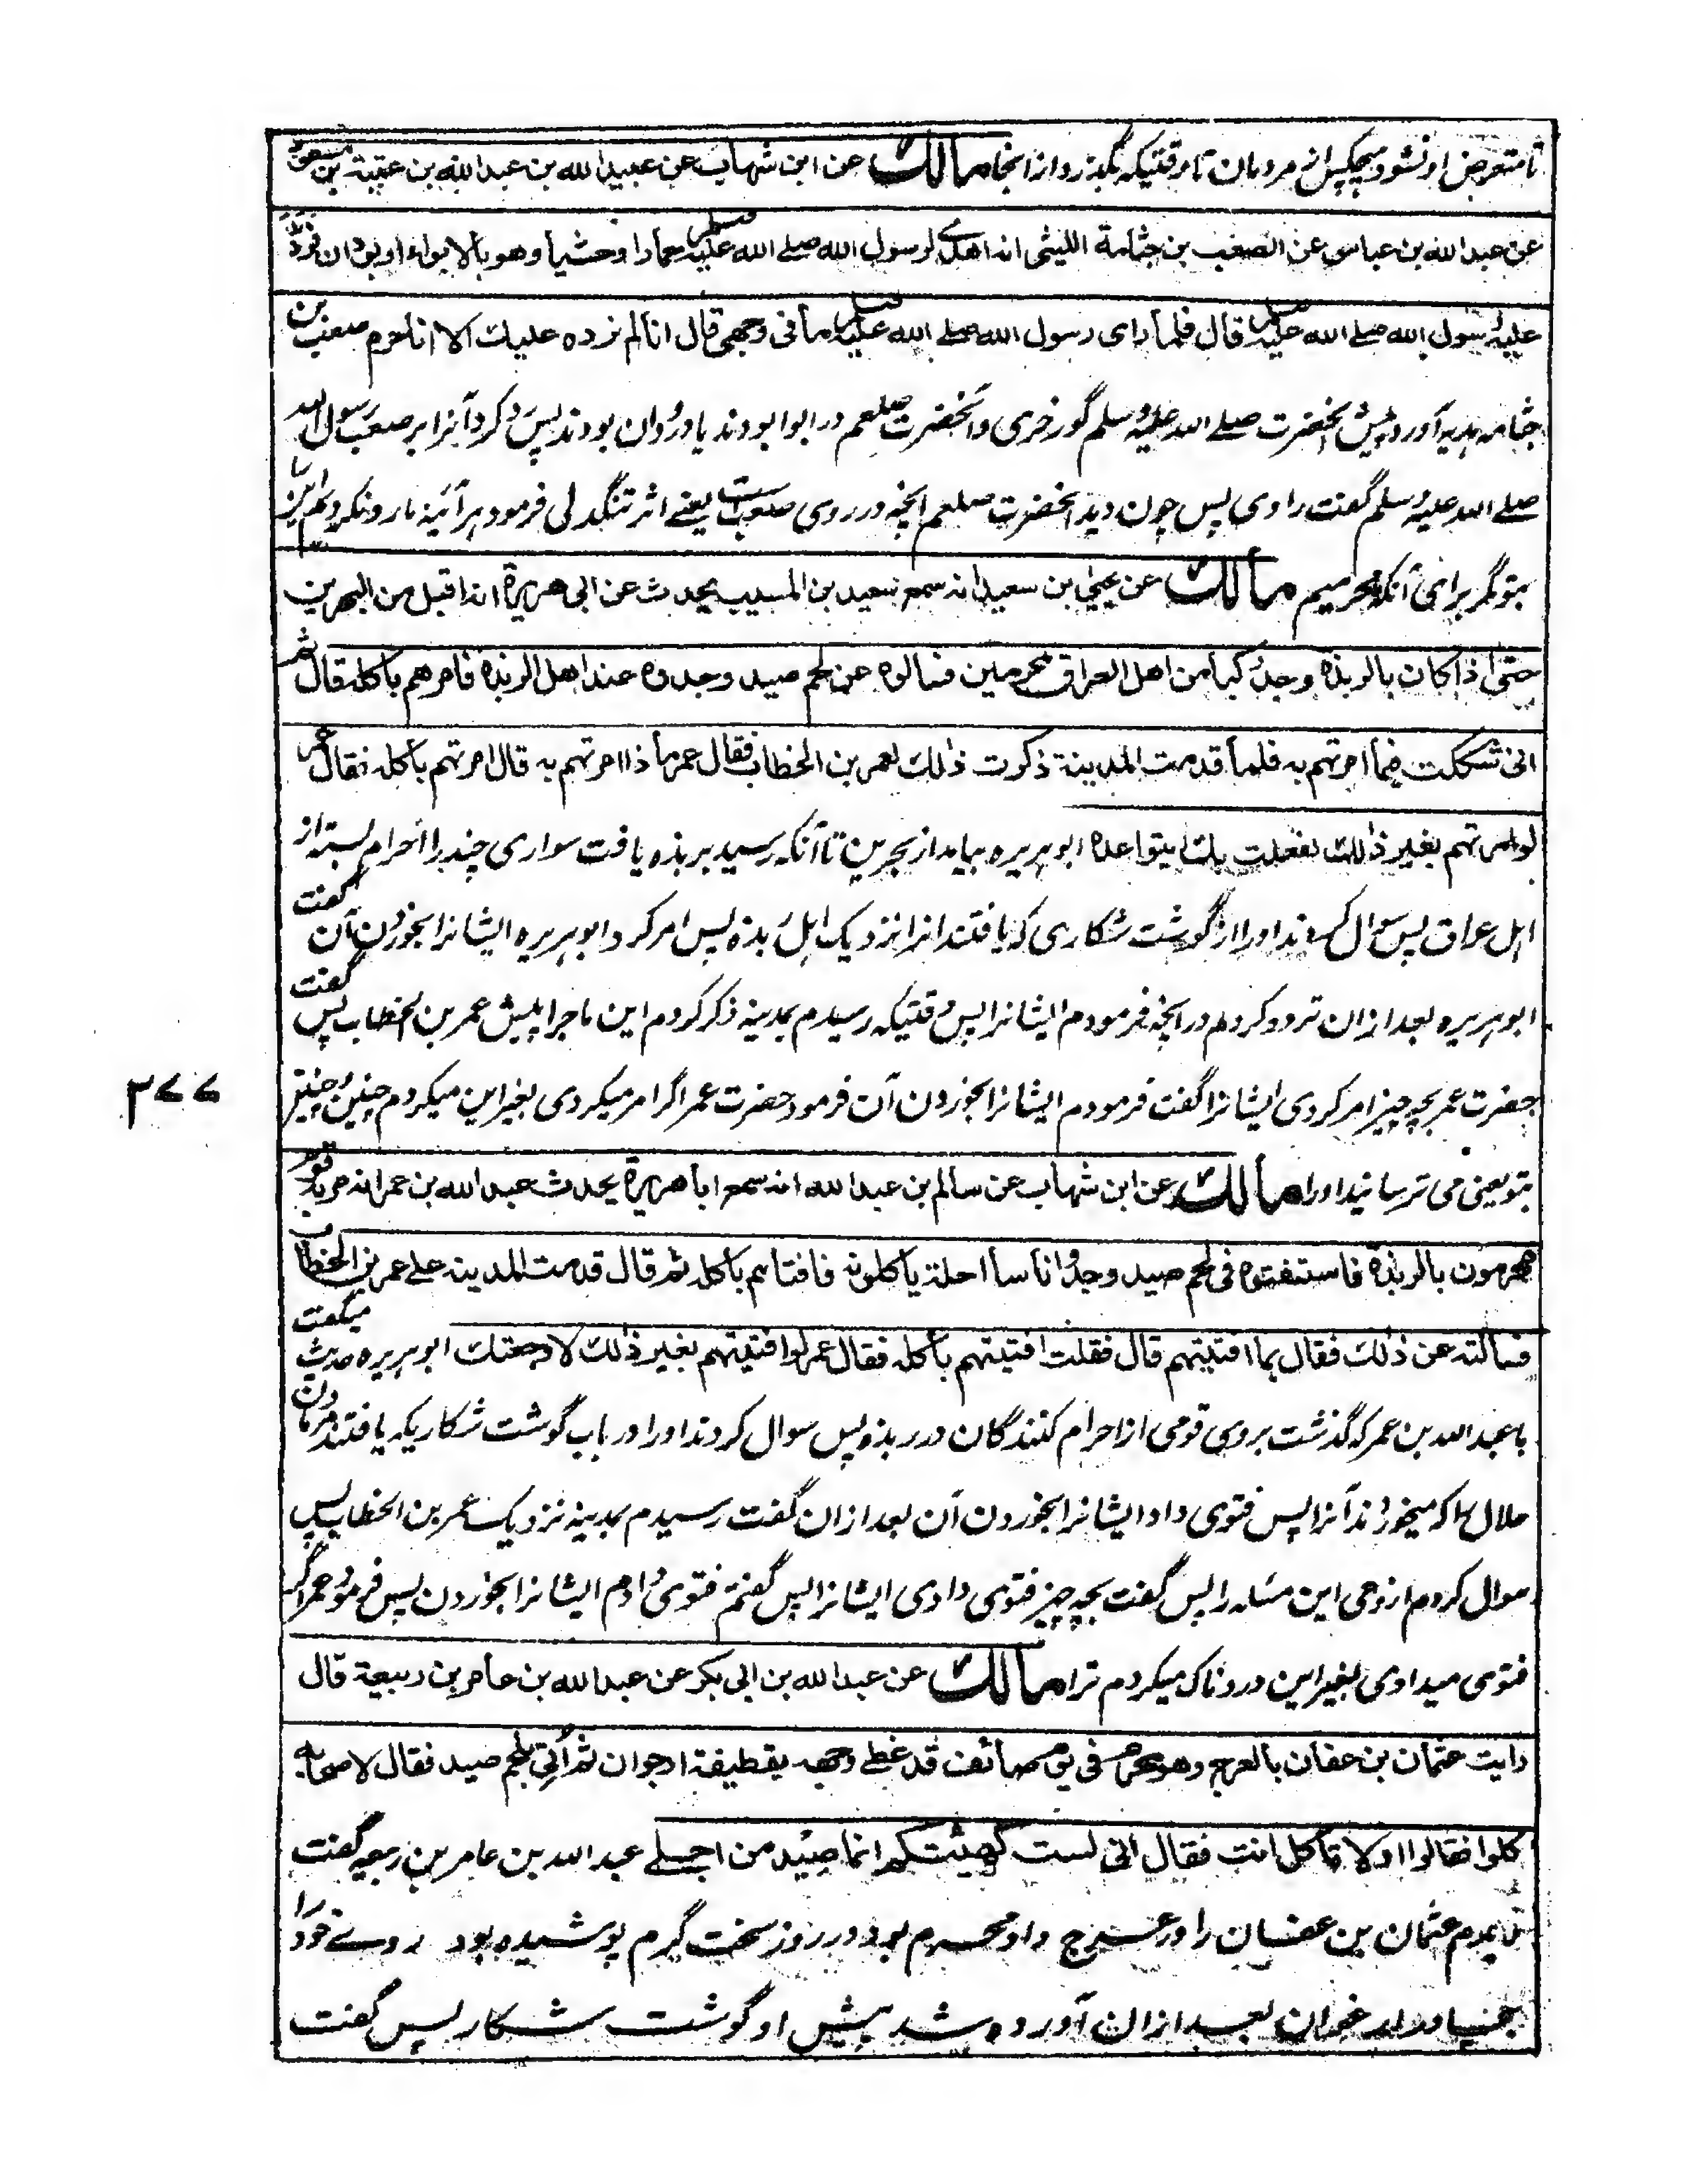 تا متعرض او نشود هیچکس از مردمان تا وقتیکه بگذرد از انجا مالك عن ابن شهاب عن عبيد الله بن عبد الله بن عتبة بن مسعود
عن عبد الله بن عباس عن الصعب بن جثامة الليثى انه اهدى لرسول الله صلے الله عليه وسلم حمارا وحشيا وهو بالابواء او بودان فرده
عليه رسول الله صلے الله عليه وسلم قال فلما راى رسول الله صلے الله عليه وسلم ما فى وجهى قال انا لم نرده عليك الا انا حرم صعب بن
جثامه هدیه آورد پیش آنحضرت صلے الله علیه وسلم گورخری و آنحضرت صلعم در ابوا بودند یا در ودان بودند پس رد کرد آنرا بر صعب رسول الله
صلے الله علیه وسلم گفت راوی پس چون دید آنحضرت صلعم آنچه در روی صعب است یعنے اثر تنگدلی فرمود هر آئینه ما رد نکردیم این را
بتو مگر برای آنکه محرمیم مالك عن يحيى بن سعيد انه سمع سعيد بن المسيب يحدث عن ابى هريرة انه اقبل من البحرين
حتى اذا كان بالربذة وجد ركبا من اهل العراق محرمين فسالوه عن لحم صيد وجدوه عند اهل الربذة فامرهم باكله قال ثم
انى شككت فيما امرتهم به فلما قدمت المدينة ذكرت ذلك لعمر بن الخطاب فقال عمر ما ذا امرتهم به قال امرتهم باكله فقال عمر
لو امرتهم بغير ذلك لفعلت بك يتواعده ابو هریره بیامد از بحرین تا آنکه رسید بربذه یافت سواری چند را احرام بسته از
اهل عراق پس سوال کردند او را از گوشت شکاری که یافتند انرا نزدیک اهل ربذه پس امر کرد ابو هریره ایشانرا بخوردن آن گفت
ابو هریره بعد ازان تردد کردم در آنچه فرمودم ایشانرا پس وقتیکه رسیدم بمدینه ذکر کردم این ماجرا پیش عمر بن الخطاب پس گفت
حضرت عمر بچه چیز امر کردی ایشانرا گفت فرمودم ایشانرا بخوردن آن فرمود حضرت عمر اگر امر میکردی بغیر این میکردم چنین و چنین
۳۷۷
بتو یعنی می ترسانید او را مالك عن ابن شهاب عن سالم بن عبد الله انه سمع ابا هريرة يحدث عبد الله بن عمر انه مر به قوم
محرمون بالربذة فاستفتوه فى لحم صيد وجدوا ناسا احلة ياكلونه فافتاهم باكله ثم قال قدمت المدينه على عمر بن الخطاب
فسالته عن ذلك فقال بما افتيتهم قال فقلت افتيتهم باكله فقال عمر لو افتيتهم بغير ذلك لاوجعتك ابو هریره حدیث میگفت
با عبد الله بن عمر که گذشت بروی قومی از احرام کنندگان در ربذه پس سوال کردند او را در باب گوشت شکاریکه یافتند مردمان
حلال را که میخورند آنرا پس فتوی داد ایشانرا بخوردن آن بعد ازان گفت رسیدم بمدینه نزدیک عمر بن الخطاب پس
سوال کردم از وی این مسئله را پس گفت بچه چیز فتوی دادی ایشانرا پس گفتم فتوی دادم ایشانرا بخوردن پس فرمود عمر اگر
فتوی میدادی بغیر این دردناک میکردم ترا مالك عن عبد الله بن ابى بكر عن عبد الله بن عامر بن ربيعة قال
رايت عثمان بن عفان بالعرج وهو محرم فى يوم صائف قد غطى وجهه بقطيفة ارجوان ثم اتى بلحم صيد فقال لاصحابه
كلوا فقالوا اولا تاكل انت فقال انى لست كهيئتكم انما صيد من اجلى عبد الله بن عامر بن ربیعه گفت
دیدم عثمان بن عفان را در عرج و او محرم بود در روز سخت گرم پوشیده بود روئے خود را
بعد ازان آورده شد پیش او گوشت شکار پس گفت